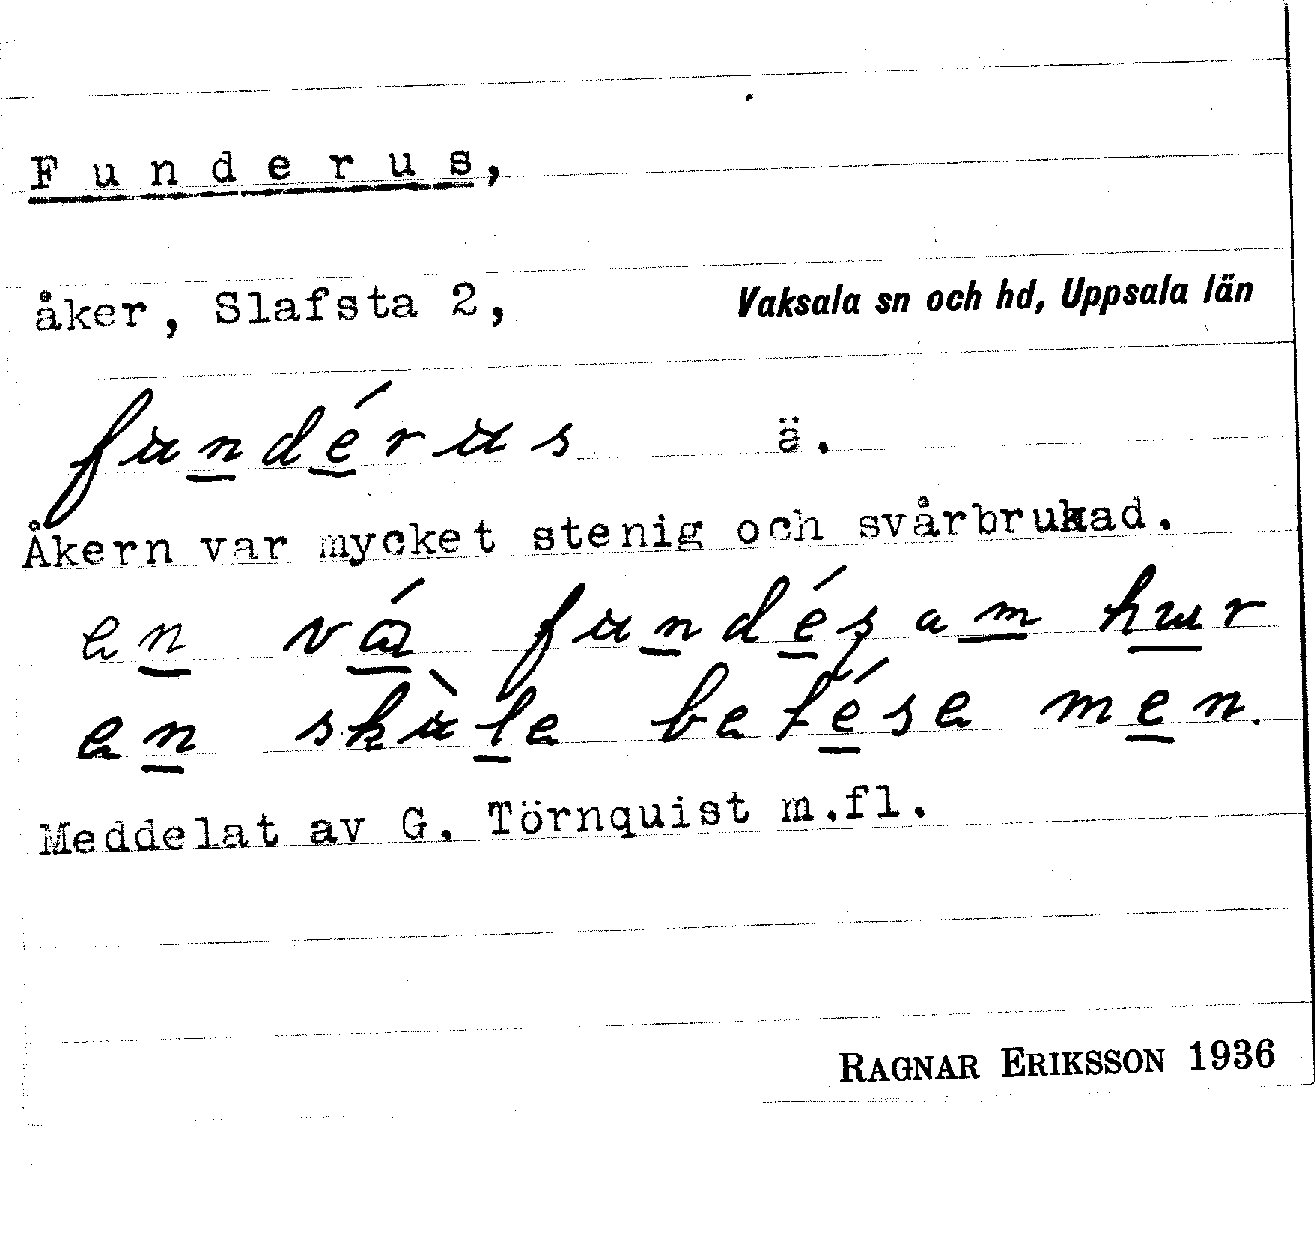 Funderus,
åker, Slafsta 2, Vaksala sn och hd, Uppsala län
fundérus ä.
Åkern var mycket stenig och svårbrukad.
en vá fundéʂam hur
en skùle betése men.
Meddelat av G. Törnquist m.fl.
RAGNAR ERIKSSON 1936